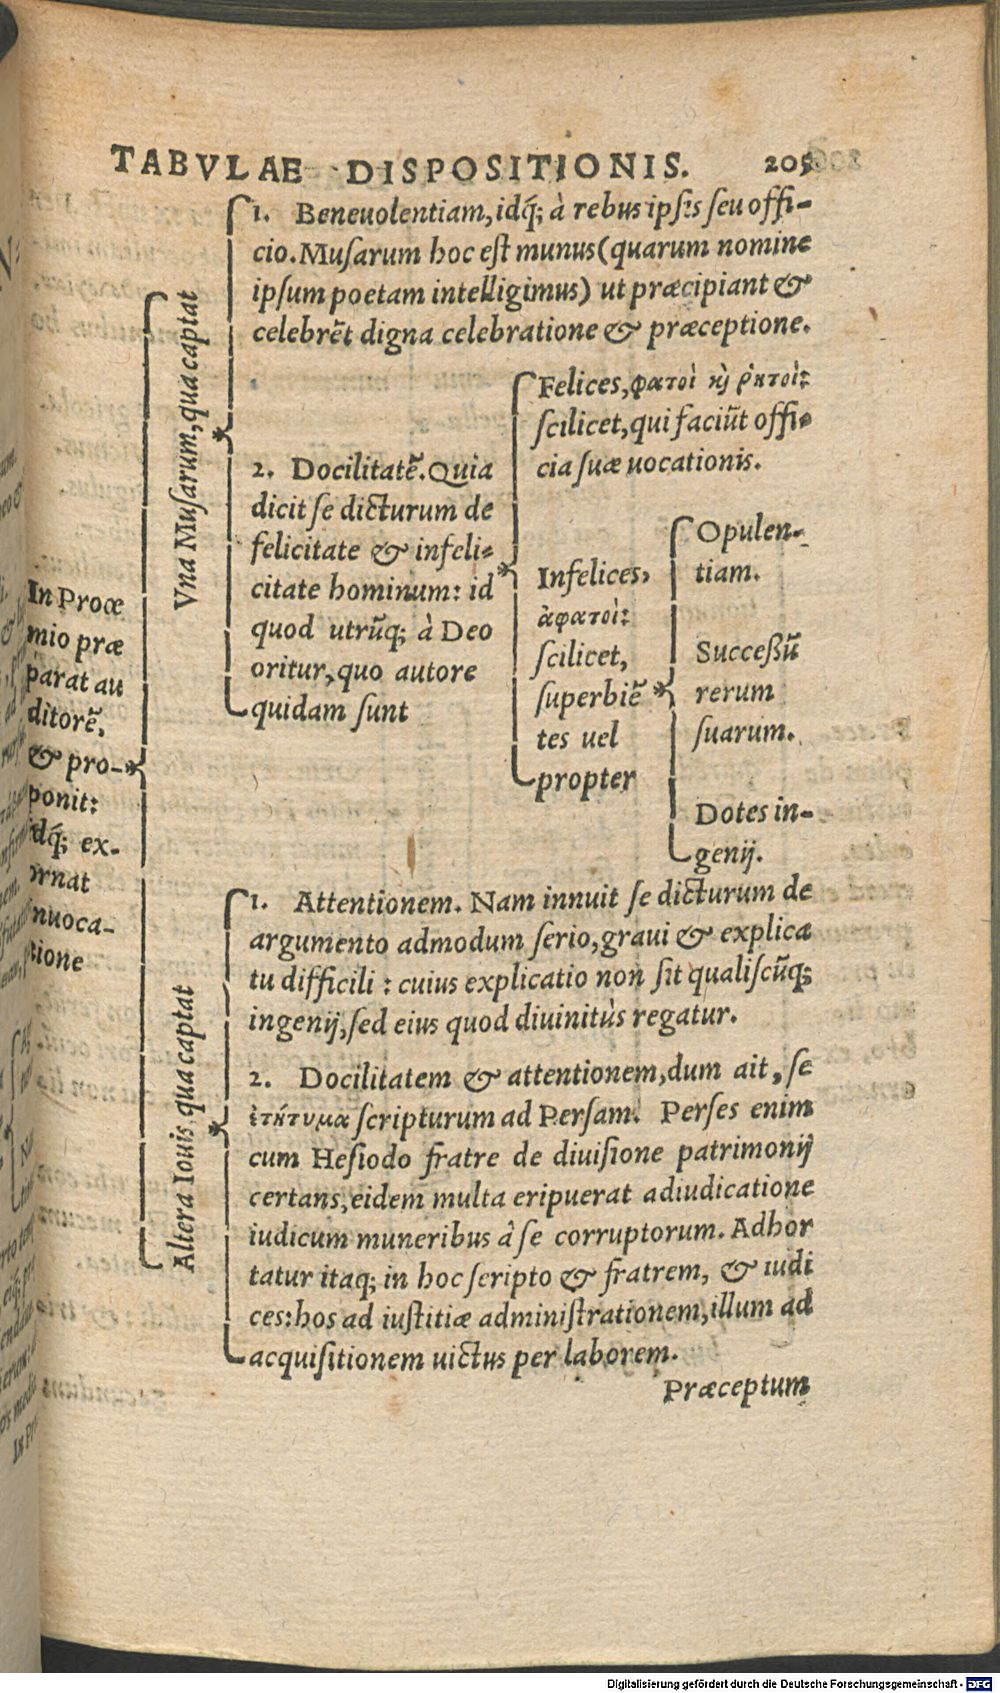 TABVLAE DISPOSITIONIS. 205
In Proœ
mio præ
parat au
ditorē,
& pro-
ponit:
idq́; ex-
ornat
inuoca-
tione
Vna Musarum, qua captat
1. Beneuolentiam, idq́; à rebus ipsis seu offi-
cio. Musarum hoc est munus (quarum nomine
ipsum poetam intelligimus) ut præcipiant &
celebrēt digna celebratione & præceptione.
2. Docilitatē. Quia
dicit se dicturum de
felicitate & infeli-
citate hominum: id
quod utrūq; à Deo
oritur, quo autore
quidam sunt
Felices, φατοὶ κỳ ῥητοὶ:
scilicet, qui faciūt offi-
cia suæ uocationis.
Infelices,
ἀφατοὶ:
scilicet,
superbiē
tes uel
propter
Opulen-
tiam.
Successū
rerum
suarum.
Dotes in-
genij.
Altera Iouis, qua captat
1. Attentionem. Nam innuit se dicturum de
argumento admodum serio, graui & explica
tu difficili: cuius explicatio non sit qualiscūq;
ingenij, sed eius quod diuinitùs regatur.
2. Docilitatem & attentionem, dum ait, se
ἐτήτυμα scripturum ad Persam. Perses enim
cum Hesiodo fratre de diuisione patrimonij
certans, eidem multa eripuerat adiudicatione
iudicum muneribus à se corruptorum. Adhor
tatur itaq; in hoc scripto & fratrem, & iudi
ces: hos ad iustitiæ administrationem, illum ad
acquisitionem uictus per laborem.
Præceptum
Digitalisierung gefördert durch die Deutsche Forschungsgemeinschaft - DFG